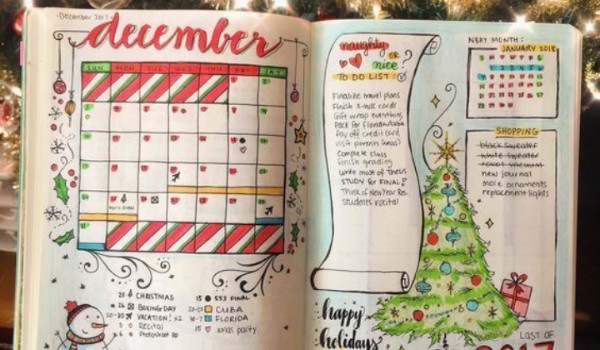 December 2017
december
SUN MON TUE WED THU FRI SAT
25 CHRISTMAS
26 BOXING DAY
VACATION! x2
Recital
15 553 FINAL
CUBA
FLORIDA
15 xmas party
naughty
OR
nice
TO DO LIST!
Finalize travel plans
Finish X-mas cards
Gift wrap everything
Pack for Florida/Cuba
Pay off credit card
visit parents (xmas)
Complete class
finish grading
write most of thesis
STUDY for FINAL!
Think of New Year Res.
students recital
happy
holidays
NEXT MONTH:
JANUARY 2018
SHOPPING
black sweater
white sweater
robot vacuum
new journal
more ornaments
replacement lights
LAST OF
2017